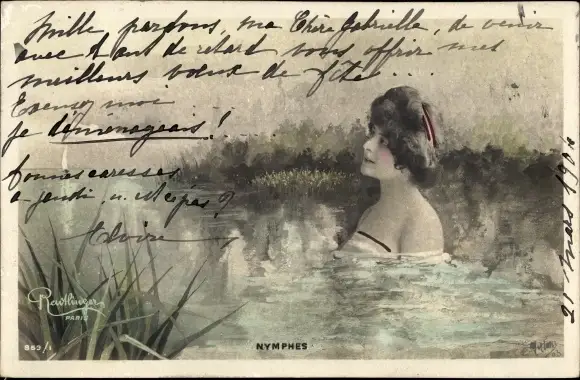 Mille pardons, ma Chère Gabrielle, de venir
avec tant de retard vous offrir mes
meilleurs voeux de fête...
Excusez moi
je déménageais!
bonnes caresses
a jeudi, n'est ce pas?
Elvire
21 mars 190
Reutlinger
PARIS
853/1
NYMPHES